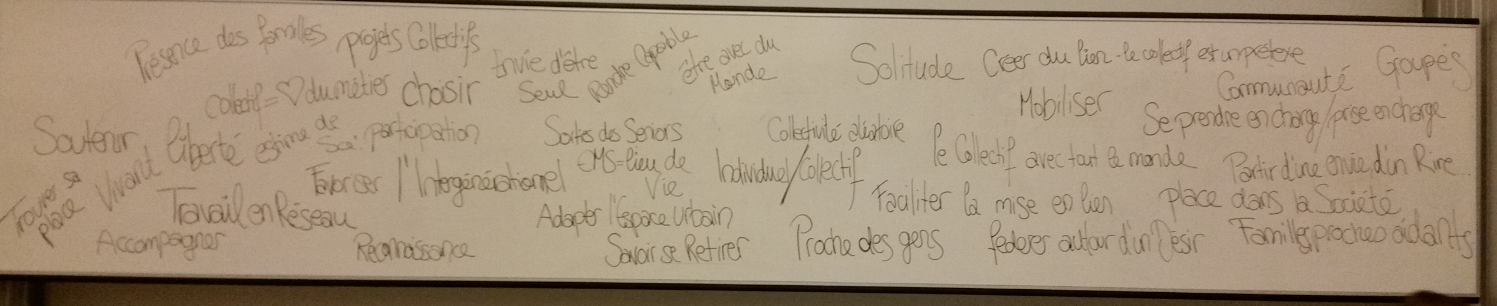 Présence des familles
projets Collectifs
Envie d'être
Seul
Rendre Capable
être avec du
Monde
Solitude
Créer du lien - le collectif est un prétexte
Groupes
Collectif = ♡ du métier
choisir
Mobiliser
Communauté
Se prendre en charge / prise en charge
Soutenir
liberté
estime de
Soi
participation
Sorties des Seniors
Collectivité
le Collectif avec tout le monde
Partir d'une envie d'un Rire
Trouver sa
place
Vivant
Favoriser l'Intergénérationnel
EMS = lieu de
Vie
Individuel/Collectif
Faciliter la mise en lien
place dans la Société
Travail en Réseau
Adapter l'Espace Urbain
Accompagner
Reconnaissance
Savoir se Retirer
Proche des gens
fédérer autour d'un Désir
Familles proches aidants